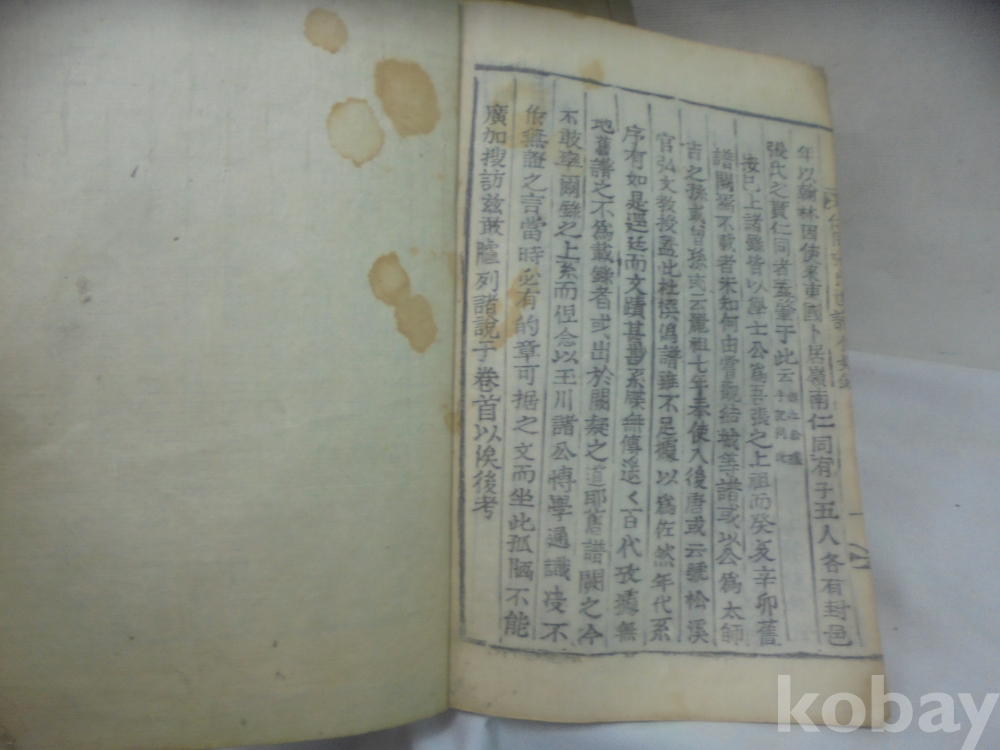 年以翰林因使來東國卜居嶺南仁同有子五人各有封邑
張氏之貫仁同者盖肇于此云
按已上諸錄皆以學士公爲吾張之上祖而癸亥辛卯舊
譜闕焉不載者未知何由嘗觀結城等諸譜或以公爲太師
吉之孫或曾孫或云麗祖七年奉使入後唐或云號松溪
官弘文敎授盖此杜撰僞譜雖不足攷以爲佐然年代系
序有如是逕廷而文蹟甚尠系牒無傳遙く百代攷據無
地舊譜之不爲載錄者或出於闕疑之道耶舊譜闕之今
不敢率爾錄之上系而但念以王川諸公博學通識凌不
作無證之言當時必有的章可据之文而坐此孤陋不能
廣加搜訪玆敢臚列諸說于卷首以俟後考
kobay